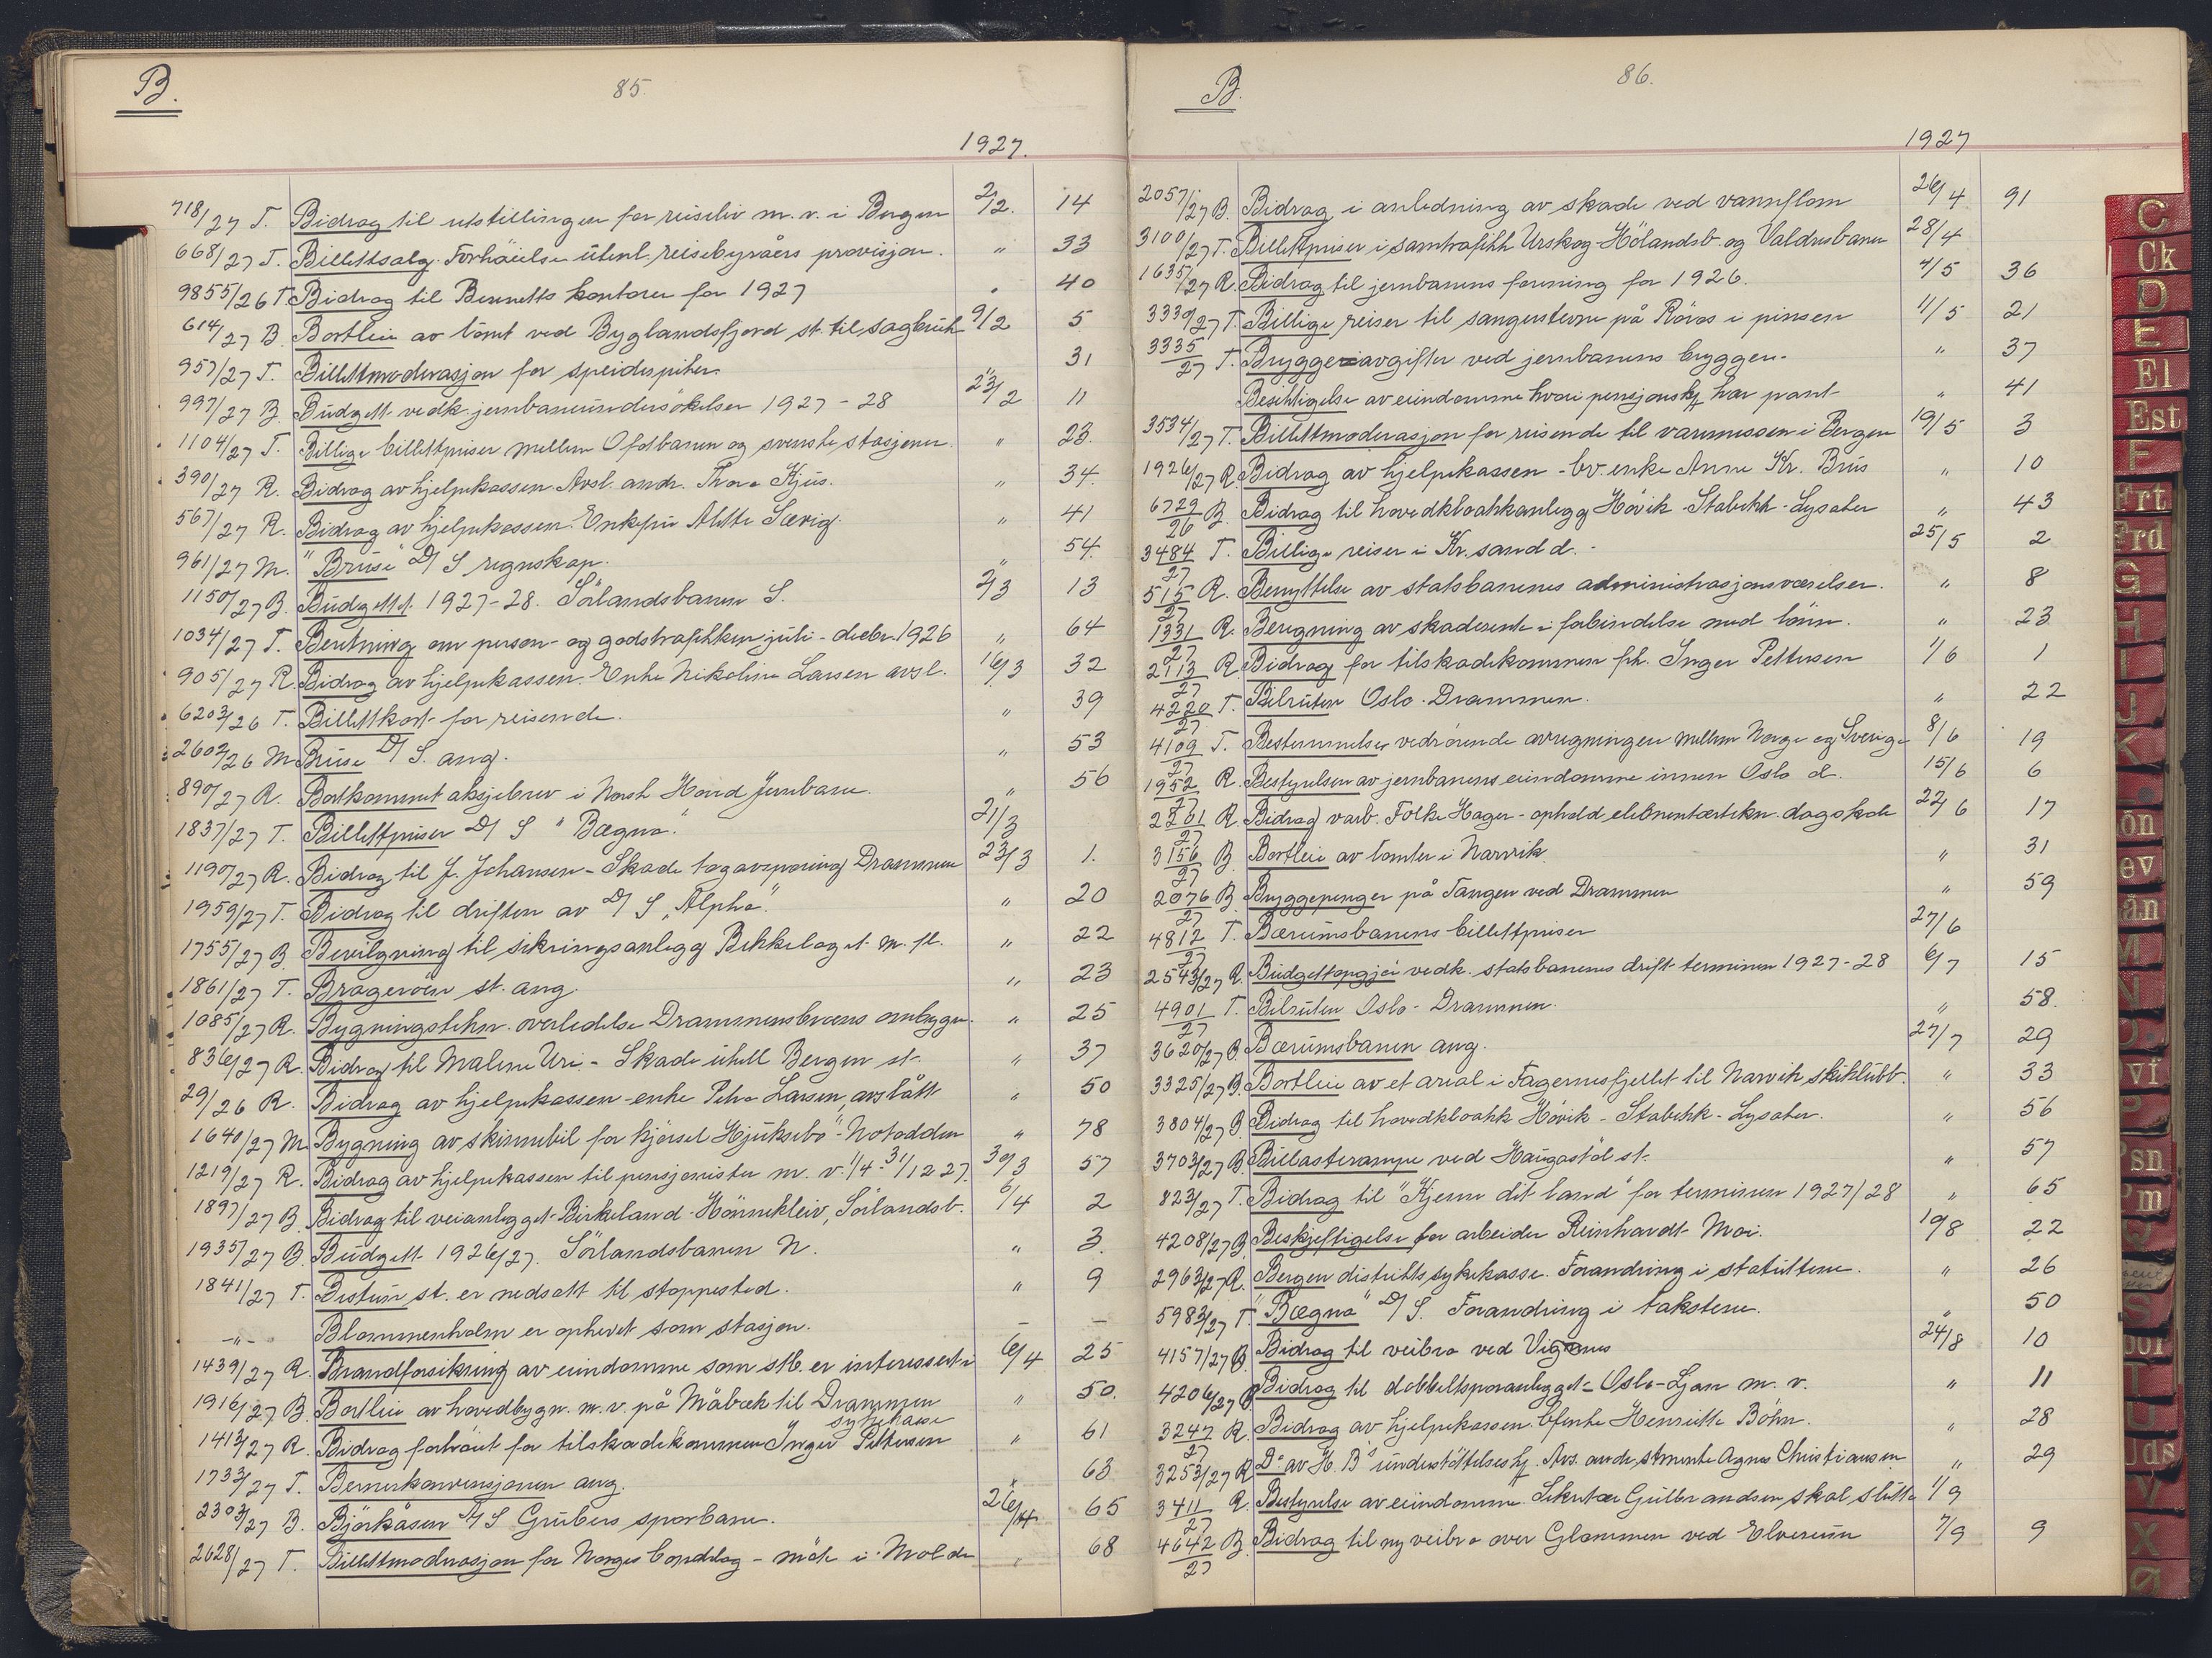 B.
85.
1927.
718/27 T. Bidrag til utstillingen for reiseliv m. v. i Bergen 2/12. 14
668/27 T. Billettsalg. Forhöielse utenl. reisebyråers provisjon. " 33
9855/26 T Bidrag til Bennetts kontorer for 1927 " 40
614/27 B. Bortleie av tomt ved Byglandsfjord st. til sagbruk 9/2 5
957/27 T. Billettmoderasjon for speiderpiker " 31
997/27 B. Budgett vedk. jernbaneundersökelser 1927-28 23/2 11
1104/27 T. Billige billettpriser mellem Ofotbanen og svenske stasjoner " 23
390/27 R. Bidrag av hjelpekassen Avsl. andr. Thora Kjus. " 34.
567/27 R. Bidrag av hjelpekassen. Enkefru Alette Særig. " 41
961/27 M. "Bruse" D/S regnskap. " 54
1150/27 B. Budgettet 1927-28. Sörlandsbanen S. 2/3 13
1034/27 T. Beretning om person- og godstrafikken juli-decbr. 1926 " 64
905/27 R. Bidrag av hjelpekassen. Enke Nikoline Larsen avsl. 16/3 32
6203/26 T. Billettkort for reisende. " 39
2602/26 M Bruse D/S. ang. " 53
890/27 R. Bortkommet aksjebrev i Norsk Hoved Jernbane. " 56
1837/27 T. Billettpriser D/S "Bægna". 21/3
1190/27 R. Bidrag til J. Johansen - Skade togavsporing Drammen 23/3 1.
1959/27 T. Bidrag til driften av D/S "Alpha". " 20
1755/27 B. Bevilgning til sikringsanlegg Bekkelaget m. fl. " 22
1861/27 T. Brageröen st. ang. " 23
1085/27 R. Bygningstekn. overledelse Drammensbanens ombygn. " 25
836/27 R. Bidrag til Malene Uri - Skade uhell Bergen st. " 37
29/26 R. Bidrag av hjelpekassen - enke Petra Larsen, avslått " 50
1640/27 M Bygning av skinnebil for kjörsel Hjuksebö - Notodden " 78
1219/27 R. Bidrag av hjelpekassen til pensjonister m. v. 1/4-31/12 27. 30/3 57
1897/27 B. Bidrag til veianlegget Birkeland-Hönnekleiv, Sörlandsb. 6/4 2
1935/27 B. Budgett 1926/27. Sörlandsbanen N. " 3.
1841/27 T. Bestun st. er nedsatt til stoppested. " 9
-"- Blommenholm er ophevet som stasjon. - -
1439/27 R. Brandforsikring av eiendomme som stb. er interessert i 6/4 25
1916/27 B. Bortleie av hovedbygn. m. v. på Måbæk til Drammen sykehuse " 50.
1413/27 R. Bidrag forhöiet for tilskadekommen Inger Pettersen " 61
1733/27 T. Bernerkonvensjonen ang. " 63
2303/27 B. Björkåsen A/S Grubers sporbane. 26/4 65
2628/27 T. Billettmoderasjon for Norges bondelag - möte i Molde " 68
B.
86.
1927
2057/27 B. Bidrag i anledning av skade ved vannflom 26/4 91
3100/27 T. Billettpriser i samtrafikk Urskog-Hölandsb. og Valdresbanen 28/4
1635/27 R. Bidrag til jernbanens forening for 1926. 4/5 36
3339/27 T. Billige reiser til sangerstevne på Röros i pinsen 11/5 21
3335/27 T. Bryggeavgifter ved jernbanens brygger. " 37
Besiktigelse av eiendomme hvori pensjonskj. har pant " 41
3534/27 T. Billettmoderasjon for reisende til varemessen i Bergen 19/5 3
1926/27 R. Bidrag av hjelpekassen - bv. enke Anne Kr. Brus " 10
6729/26 B. Bidrag til hovedkloakkanlegg Hövik-Stabekk-Lysaker " 43
3484/27 T. Billige reiser i Kr.sand d. 25/5 2
515/27 R. Benyttelse av statsbanenes administrasjonsværelser. " 8
1331/27 R. Beregning av skaderente i forbindelse med lönn. " 23
2113/27 R Bidrag for tilskadekommen fh. Inger Pettersen 1/6 1
4220/27 T. Bilruten Oslo-Drammen. " 22
4109/27 T. Bestemmelser vedrörende avregningen mellem Norge og Sverige 8/6 19
1952/27 R. Bestyrelsen av jernbanens eiendomme innen Oslo d. 15/6 6
2261/27 R. Bidrag varb. Folke Hager - ophold elementærtekn. dagskole 22/6 17
3156/27 B. Bortleie av tomter i Narvik. " 31
2076/27 B Bryggepenger på Tangen ved Drammen " 59
4812/27 T. Bærumsbanens billettpriser 27/6
2543/27 R. Budgettopgjör vedk. statsbanenes drift terminen 1927-28 6/7 15
4901/27 T. Bilruten Oslo-Drammen. " 58.
3620/27 B. Bærumsbanen ang. 27/7 29
3325/27 B. Bortleie av et areal i Fagernesfjellet til Narvik skiklubb. " 33
3804/27 B. Bidrag til hovedkloakk Hövik-Stabekk-Lysaker. " 56
3703/27 B. Billasterampe ved Haugastöl st. " 57
823/27 T. Bidrag til "Kjenn dit land" for terminen 1927/28 " 65
4208/27 B. Beskjeftigelse for arbeider Reinhardt Moi. 19/8 22
2963/27 R. Bergen distrikts sykekasse. Forandring i statuttene. " 26
5983/27 T. "Bægna" D/S. Forandring i takstene. " 50
4157/27 B. Bidrag til veibro ved Vignes 24/8 10
4206/27 B Bidrag til dobbeltsporanlegget Oslo-Ljan m. v. " 11
3247/27 R. Bidrag av hjelpekassen. Bfenke Henriette Böhn. " 28
3253/27 R D° av H. B's understöttelseskj. Avs. andr. Agnes Christiansen " 29
3411/27 R. Bestyrelse av eiendomme. Sekretær Gulbrandsen skal slutte 1/9
4642/27 B. Bidrag til ny veibro over Glommen ved Elverum 7/9 9
C
Ck
D
E
El
Est
F
Frt
Frd
G
H
I
J
K
M
N
O
P
S
T
U
V
X
Ø